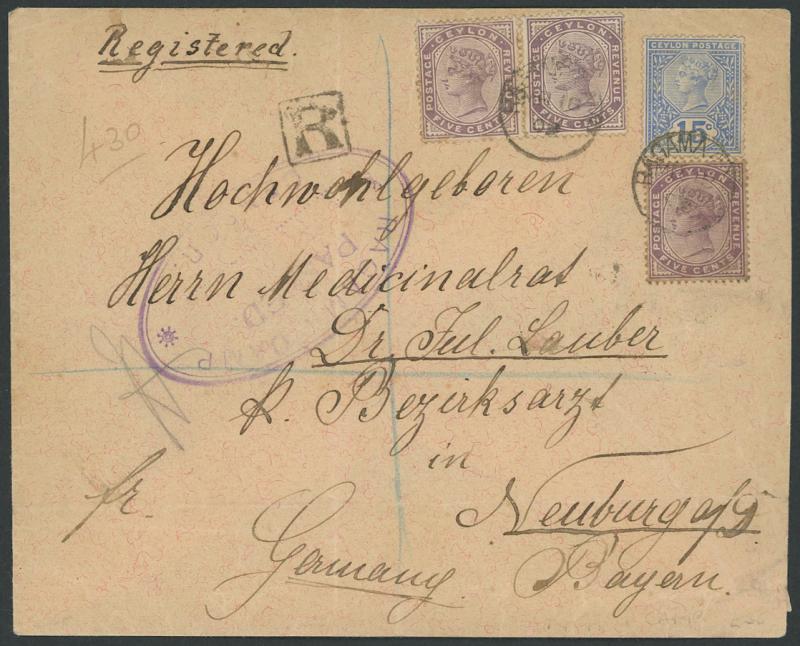 Registered.
CEYLON
POSTAGE
REVENUE
FIVE CENTS
CEYLON
POSTAGE
REVENUE
FIVE CENTS
CEYLON POSTAGE
15c
RAGAMA
CEYLON
POSTAGE
REVENUE
FIVE CENTS
430
R
Hochwohlgeboren
Herrn Medicinalrat
Dr. Jul. Lauber
k. Bezirksarzt
in
fr.
Neuburg a/D
Germany. Bayern.